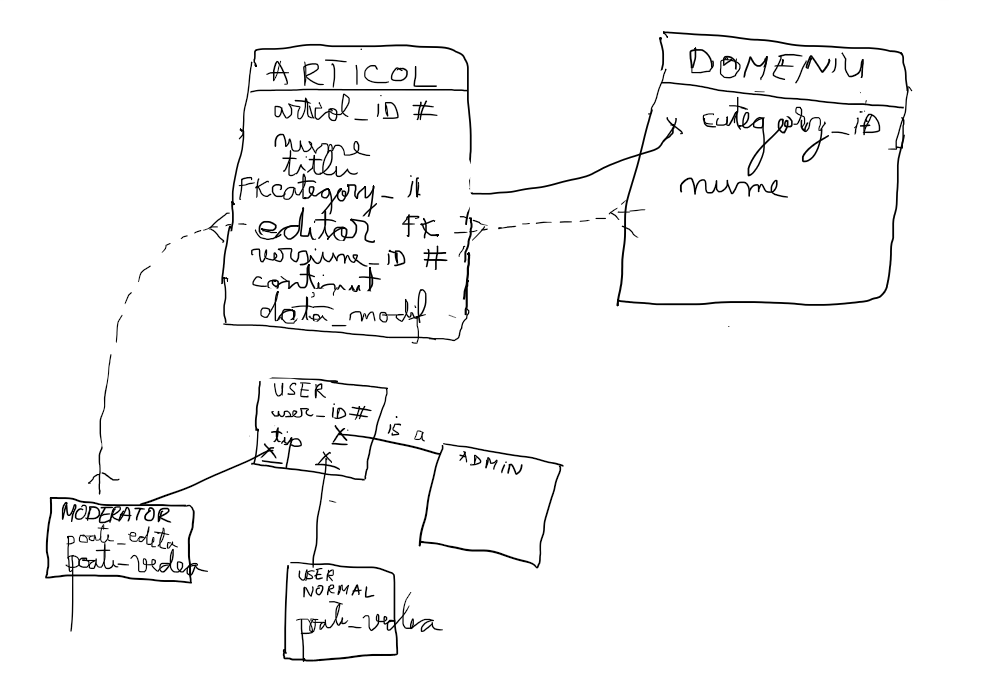 ARTICOL
articol_ID #
nume
titlu
FK category_id
editor FK
versiune_ID #
conținut
data_modif
DOMENIU
category_iD
nume
USER
user_ID #
tip
is a
ADMIN
MODERATOR
poate_edita
poate_vedea
USER
NORMAL
poate_vedea